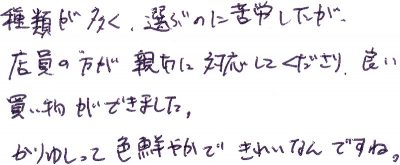 種類が多く、選ぶのに苦労したが、
店員の方が親切に対応してくださり、良い
買い物ができました。
かりゆしって色鮮やかできれいなんですね。